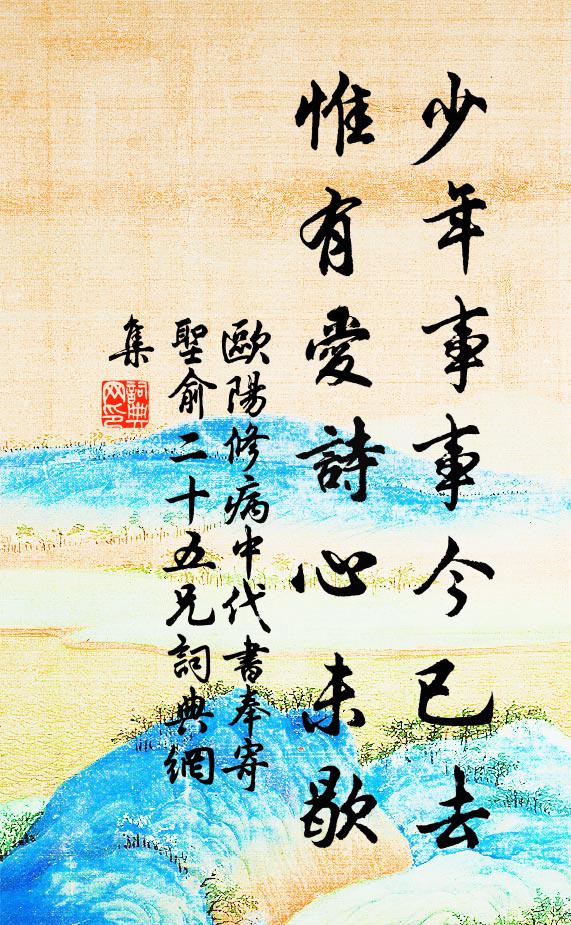 少年事事今已去
惟有愛詩心未歇
歐陽修病中代書奉寄
聖俞二十五兄詞典網
集
詞典
网印